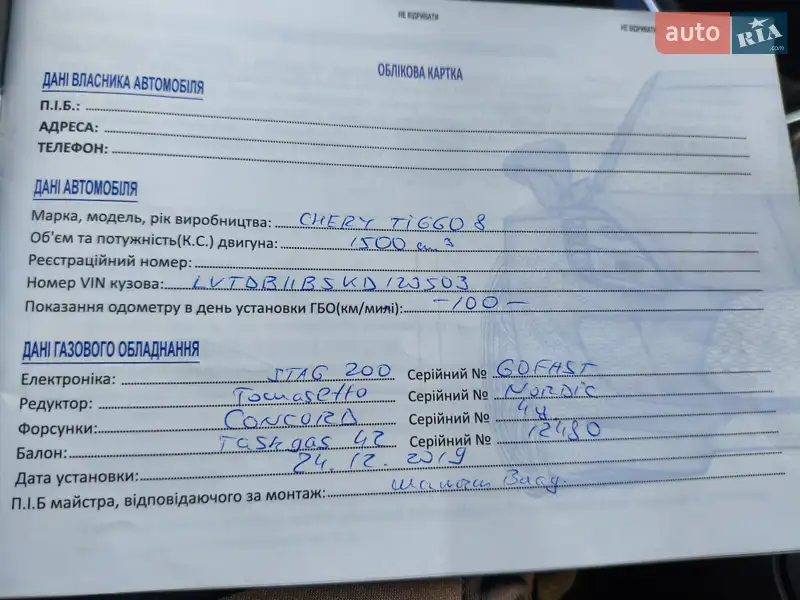 НЕ ВІДРИВАТИ
НЕ ВІДРИВАТИ
auto RIA.com
ОБЛІКОВА КАРТКА
ДАНІ ВЛАСНИКА АВТОМОБІЛЯ
П.І.Б.:
АДРЕСА:
ТЕЛЕФОН:
ДАНІ АВТОМОБІЛЯ
Марка, модель, рік виробництва: CHERY TIGGO 8
Об'єм та потужність(К.С.) двигуна: 1500 см3
Реєстраційний номер:
Номер VIN кузова: LVTDB11B5KD123503
Показання одометру в день установки ГБО(км/милі): -100-
ДАНІ ГАЗОВОГО ОБЛАДНАННЯ
Електроніка: STAG 200 Серійний № GOFAST
Редуктор: Tomasetto Серійний № NORDIC
Форсунки: CONCORD Серійний № 4ц
Балон: Tashgas 42 Серійний № 12480
Дата установки: 24.12.2019
П.І.Б майстра, відповідаючого за монтаж: Влад.